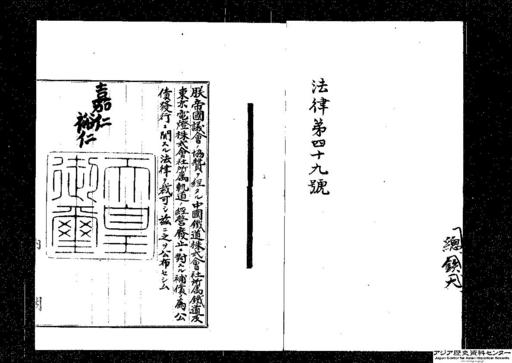 法律第四十九號
朕帝國議會ノ協賛ヲ經タル中國鐵道株式會社所屬鐵道及
東京電燈株式會社所屬軌道ノ經營廢止ニ對スル補償ノ爲公
債發行ニ關スル法律ヲ裁可シ茲ニ之ヲ公布セシム
嘉仁
裕仁
天皇
御璽
内閣
アジア歴史資料センター
Japan Center for Asian Historical Records